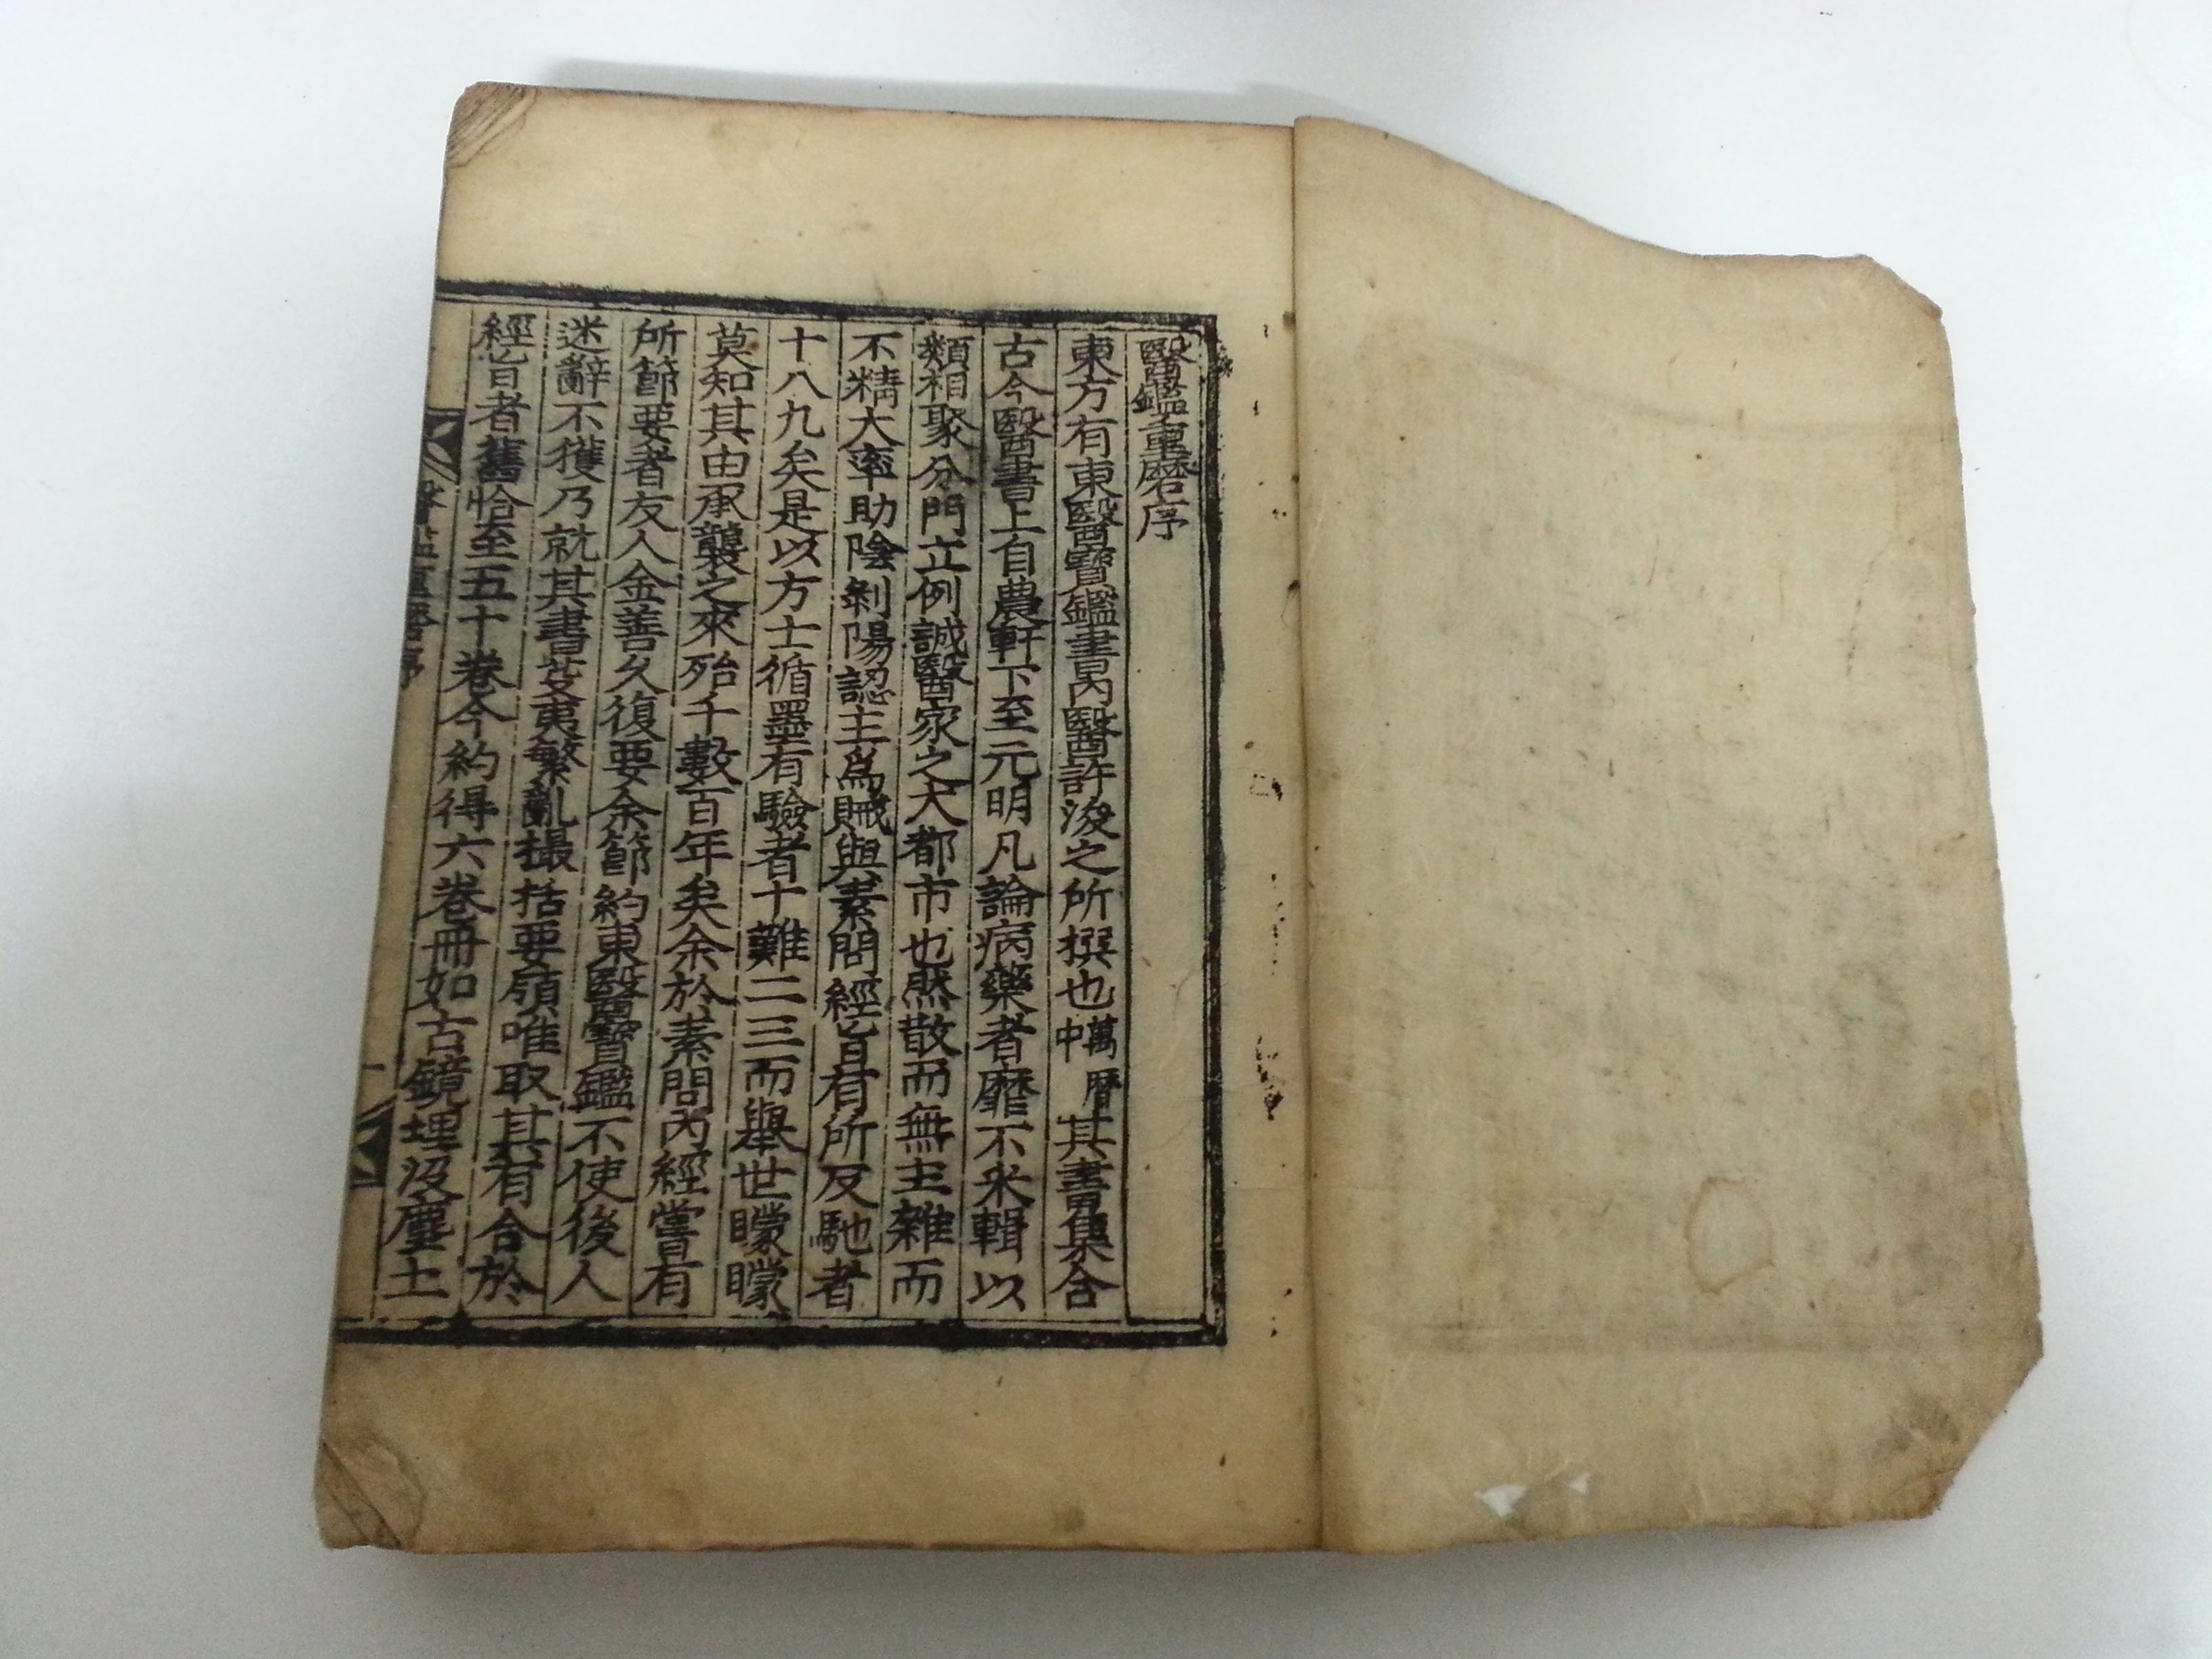 醫鑑重磨序
東方有東醫寶鑑書內醫許浚之所撰也萬曆中其書集合
古今醫書上自農軒下至元明凡論病藥者靡不采輯以
類相聚分門立例誠醫家之大都市也然散而無主雜而
不精大率助陰剝陽認主爲賊與素問經旨有所反馳者
十八九矣是以方士循墨有驗者十難二三而擧世矇矇
莫知其由承襲之來殆千數百年矣余於素問內經嘗有
所節要者友人金善久復要余節約東醫寶鑑不使後人
迷辭不獲乃就其書芟夷繁亂撮括要領唯取其有合於
經旨者舊恰至五十卷今約得六卷冊如古鏡埋沒塵土